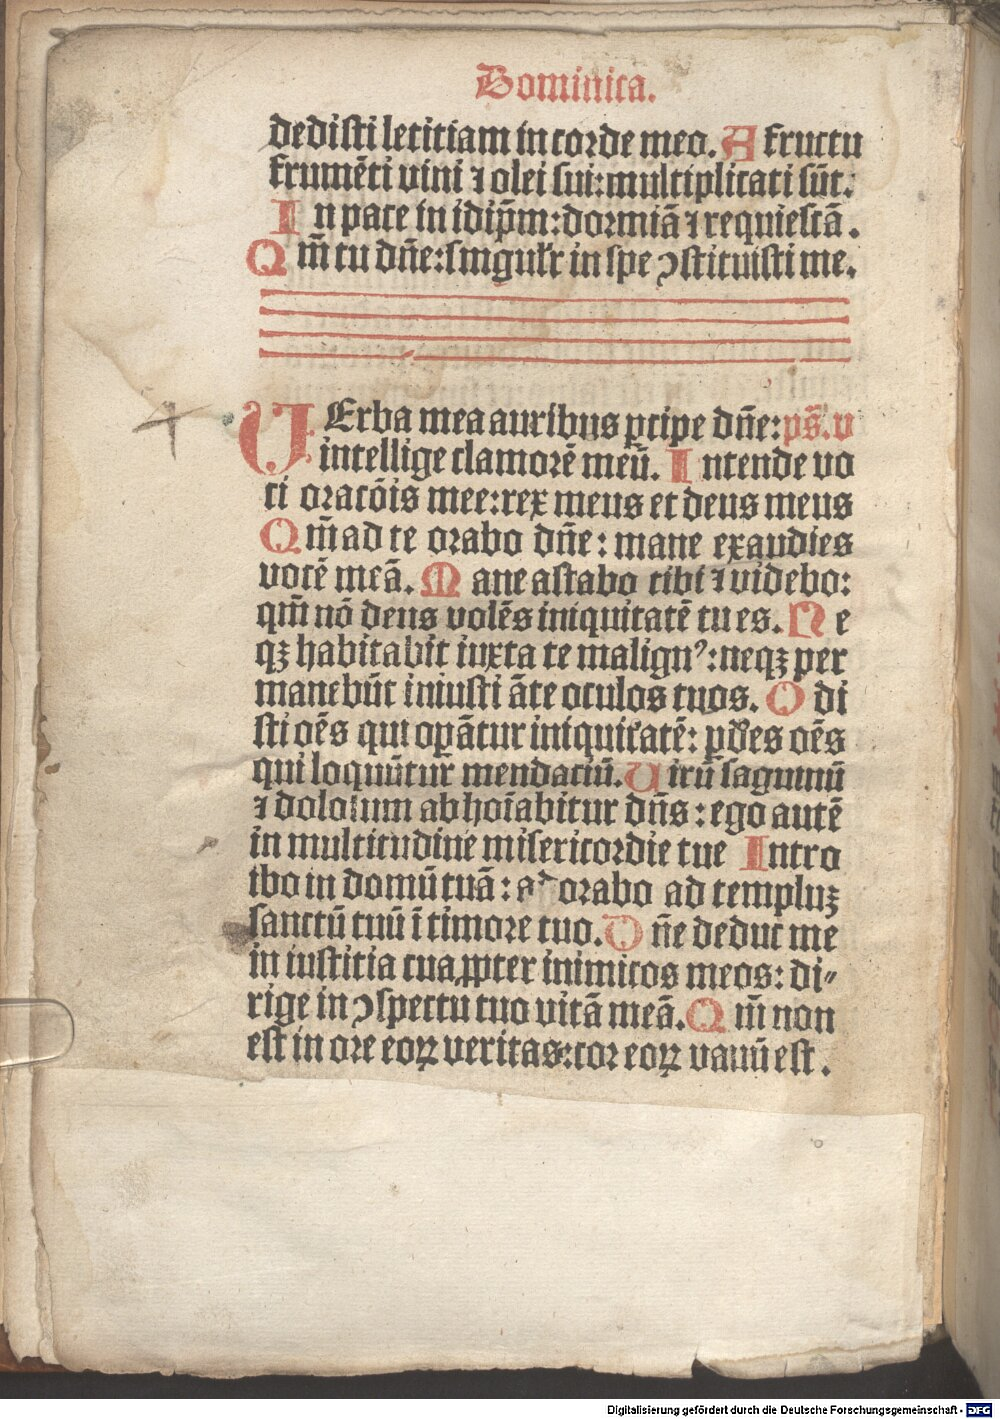 Dominica.
dedisti leticiam in corde meo. A fructu
frumēti vini ⁊ olei sui: multiplicati sūt.
In pace in idip̄m: dormiā ⁊ requiescā.
Qm̄ tu dn̄e: singul'r in spe ꝯstituisti me.
VErba mea auribus ꝑcipe dn̄e: ps̄. v
intellige clamorē meū. Intende vo
ci oracōis mee: rex meus et deus meus
Qm̄ ad te orabo dn̄e: mane exaudies
vocē meā. Mane astabo tibi ⁊ videbo:
qm̄ nō deus volēs iniquitatē tu es. Ne
qꝫ habitabit iuxta te malignꝰ: neqꝫ per
manebūt iniusti āte oculos tuos. Odi
sti oēs qui oꝑātur iniquitatē: ꝑdes oēs
qui loquūtur mendaciū. Virū saguinū
⁊ dolosum abhoīabitur dn̄s: ego autē
in multitudine misericordie tue Intro
ibo in domū tuā: adorabo ad templuꝫ
sanctū tuū ī timore tuo. Dn̄e deduc me
in iusticia tua ꝓpter inimicos meos: di⸗
rige in ꝯspectu tuo vitā meā. Qm̄ non
est in ore eoꝝ veritas: cor eoꝝ vanū est.
Digitalisierung gefördert durch die Deutsche Forschungsgemeinschaft - DFG